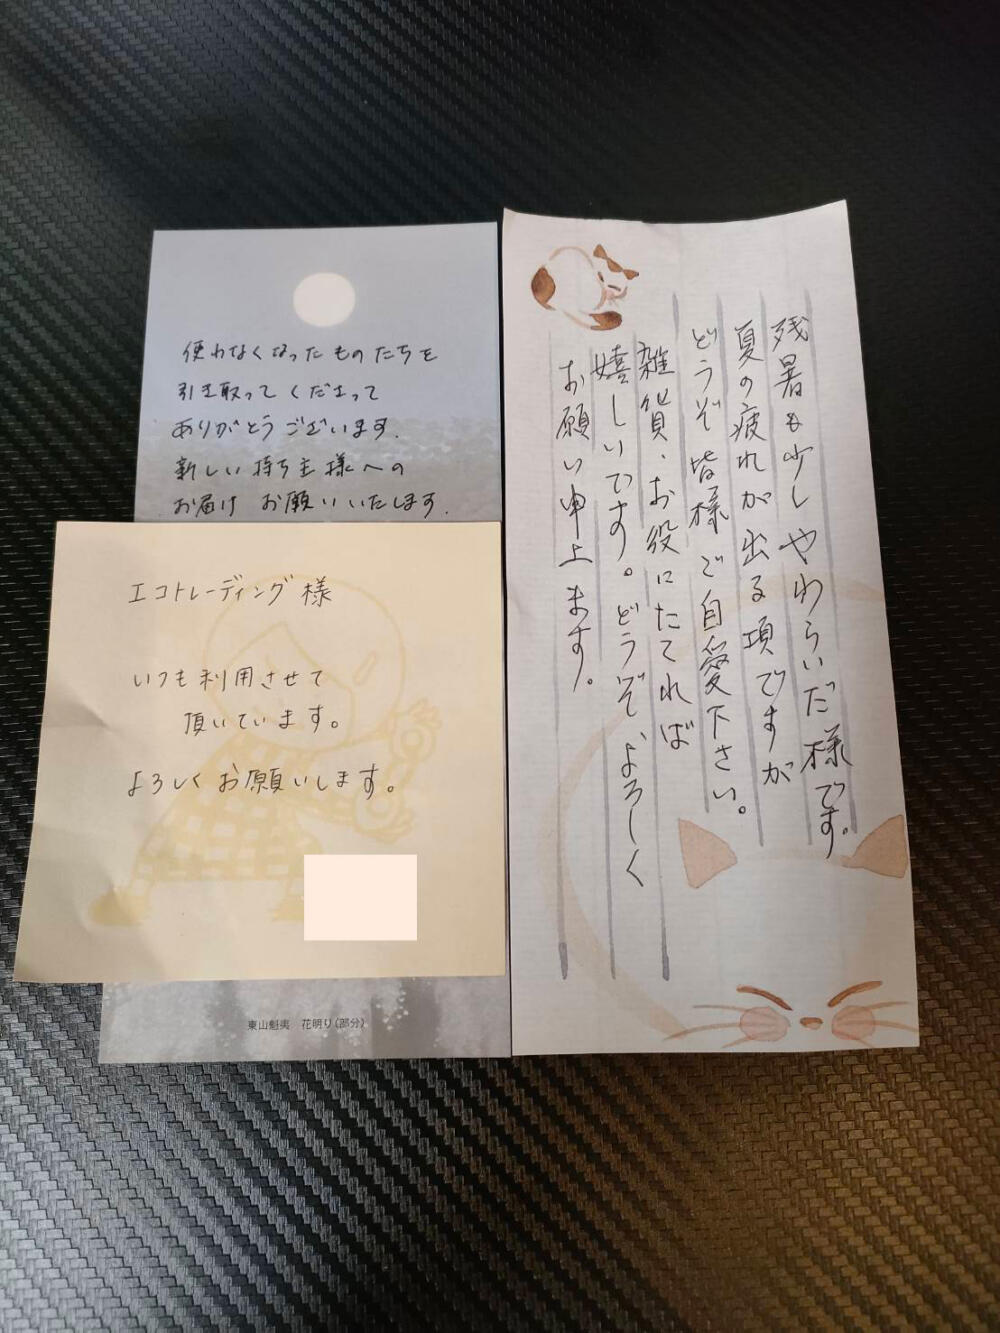 使わなくなったものたちを
引き取ってくださって
ありがとうございます.
新しい持ち主様への
お届け お願いいたします.
エコトレーディング様
いつも利用させて
頂いています。
よろしくお願いします。
東山魁夷 花明り(部分)
残暑も少しやわらいだ様です。
夏の疲れが出る項ですが
どうぞ皆様ご自愛下さい。
雑貨、お役にたてれば
嬉しいです。どうぞ、よろしく
お願い申上ます。